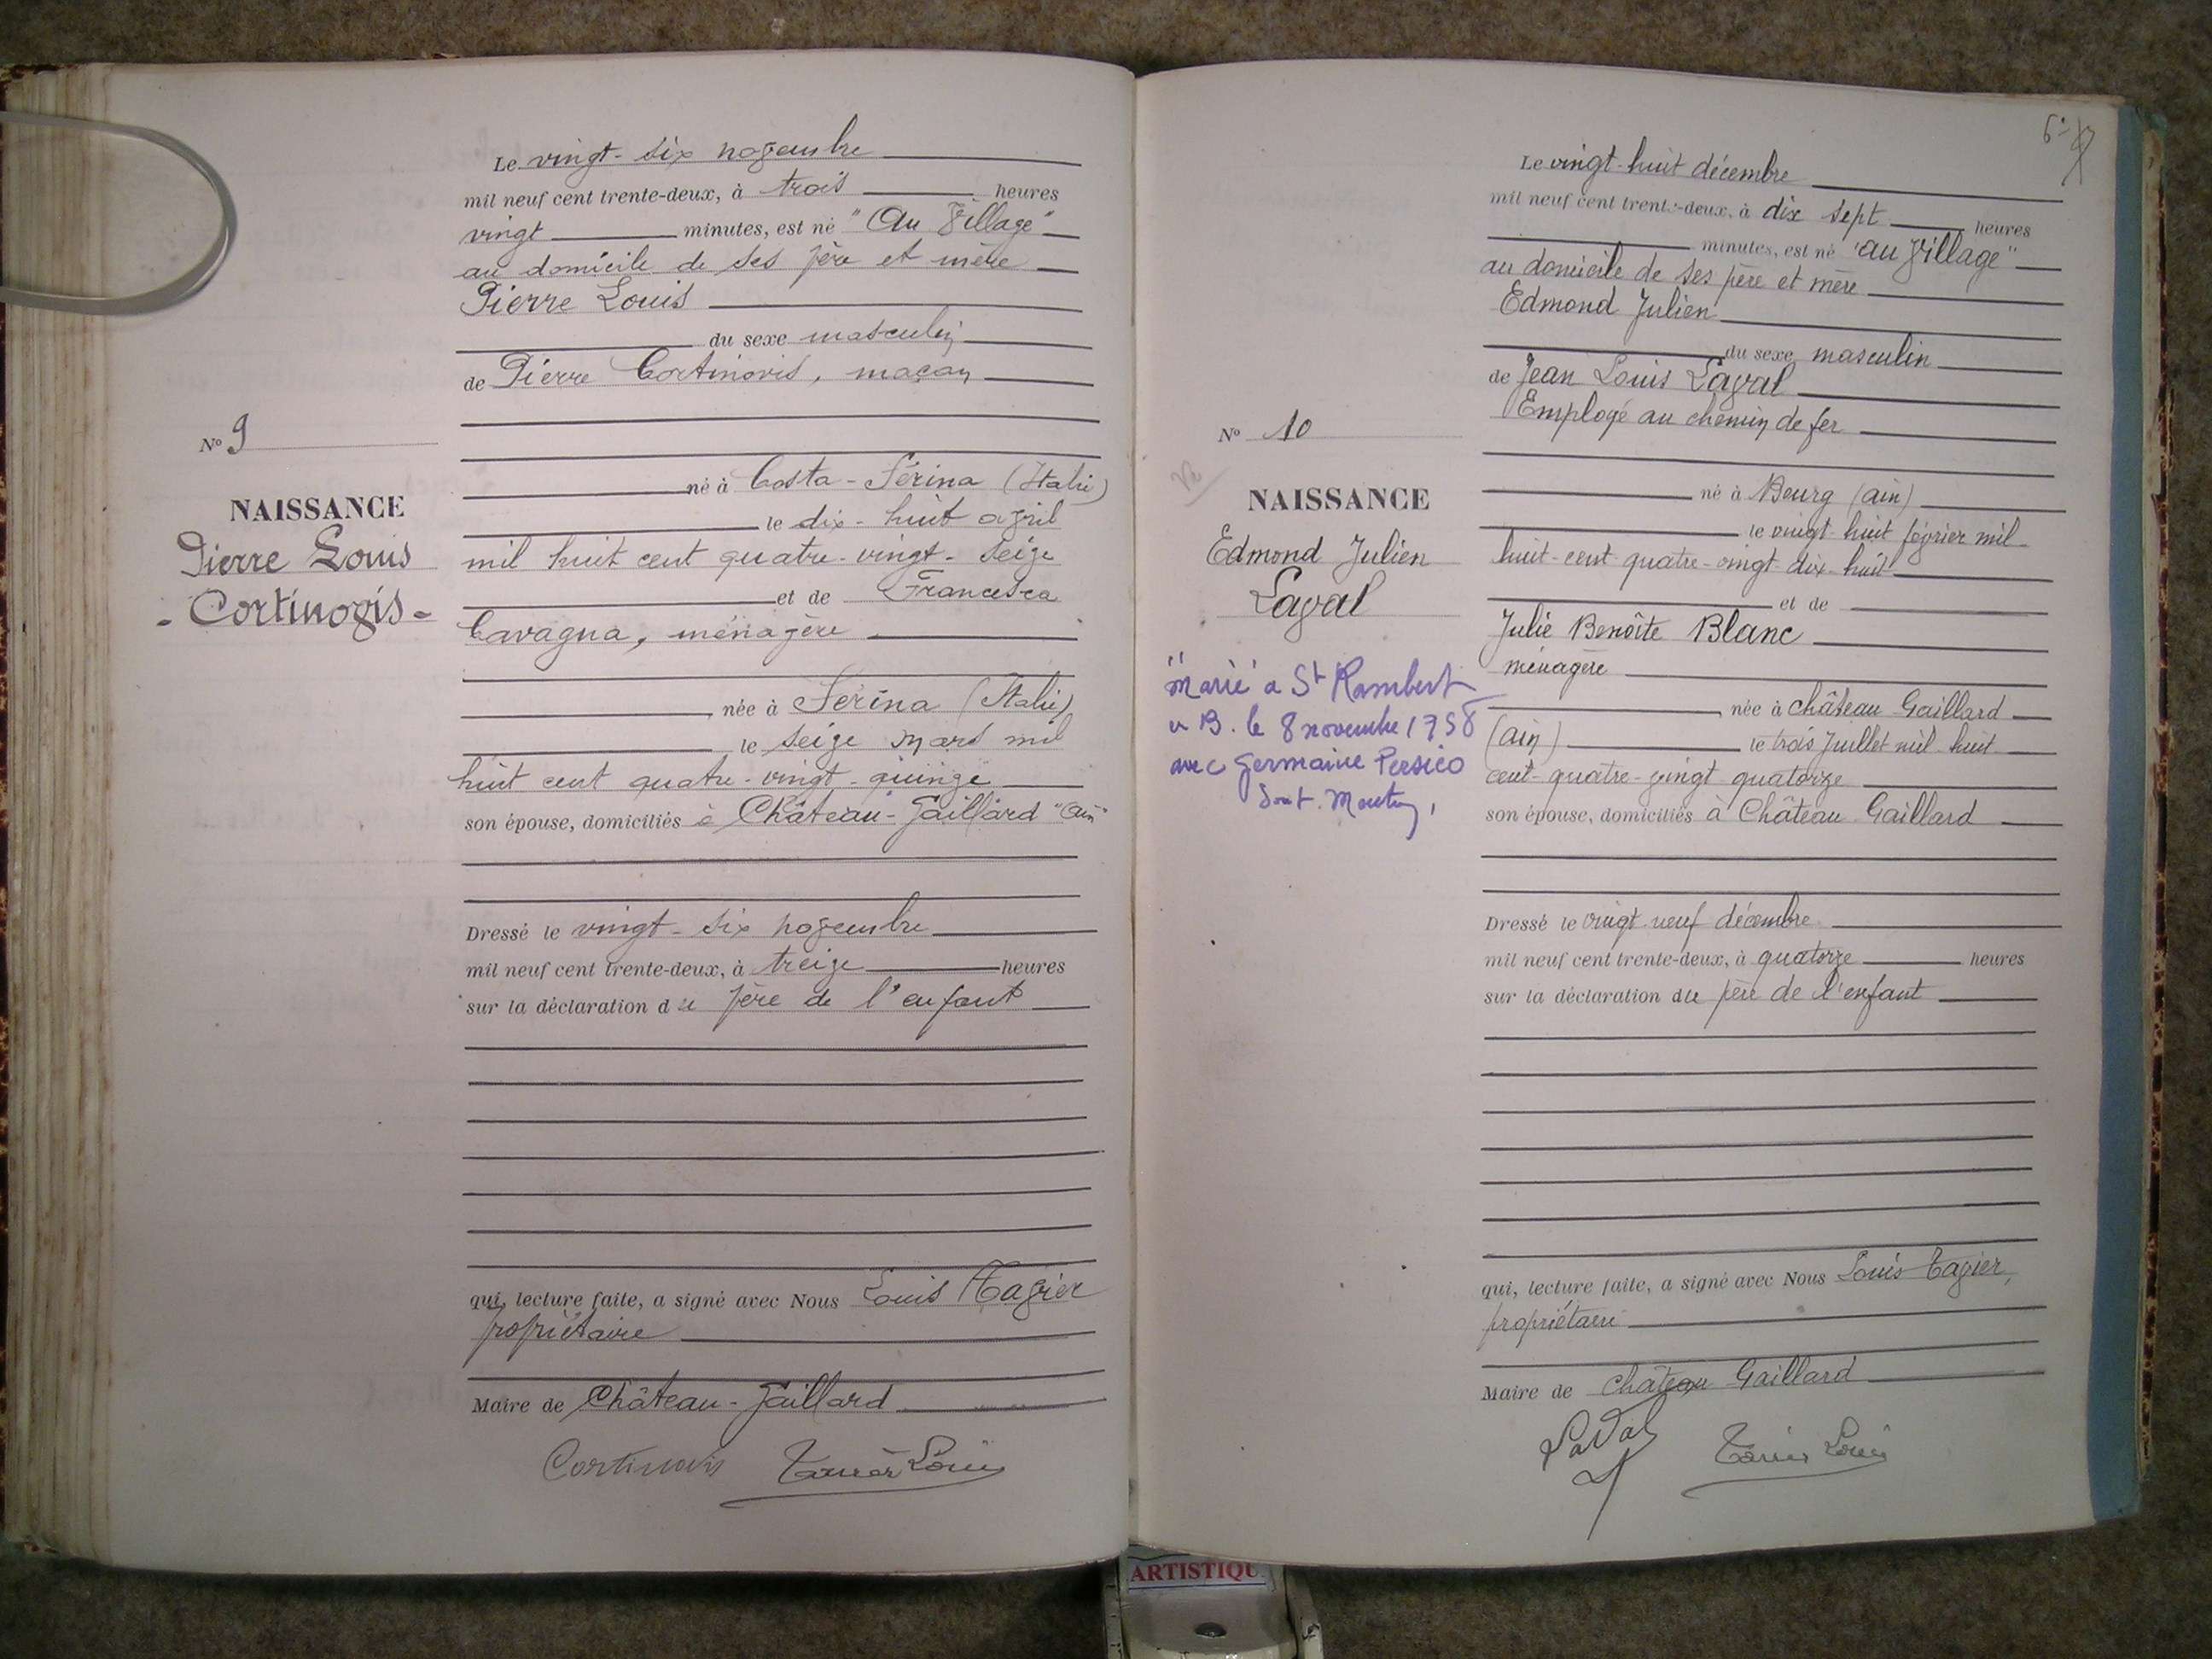 Le vingt-six novembre
mil neuf cent trente-deux, à trois heures
vingt minutes, est né "Au Village"
au domicile de ses père et mère
Pierre Louis
du sexe masculin
de Pierre Cortinovis, maçon
né à Costa-Sérina (Italie)
le dix-huit avril
mil huit cent quatre-vingt-seize
et de Francesca
Cavagna, ménagère
née à Serina (Italie)
le seize Mars mil
huit cent quatre-vingt-quinze
son épouse, domiciliés à Château-Gaillard "Ain"
Dressé le vingt-six novembre
mil neuf cent trente-deux, à treize heures
sur la déclaration du père de l'enfant
qui, lecture faite, a signé avec Nous Louis Tavier
propriétaire
Maire de Château-Gaillard
Cortinovis Tavier Louis
N° 9
NAISSANCE
Pierre Louis
- Cortinovis -
6
Le vingt-huit décembre
mil neuf cent trente-deux, à dix sept heures
minutes, est né "au Village"
au domicile de ses père et mère
Edmond Julien
du sexe masculin
de Jean Louis Laval
Employé au chemin de fer
né à Bourg (ain)
le vingt-huit février mil
huit-cent quatre-vingt-dix-huit
et de
Julie Benoîte Blanc
ménagère
née à Château Gaillard
(ain) le trois Juillet mil huit
cent-quatre-vingt quatorze
son épouse, domiciliés à Château Gaillard
Dressé le vingt-neuf décembre
mil neuf cent trente-deux, à quatorze heures
sur la déclaration du père de l'enfant
qui, lecture faite, a signé avec Nous Louis Tavier,
propriétaire
Maire de Château Gaillard
Laval Tavier Louis
N° 10
NAISSANCE
Edmond Julien
Laval
"Marié à St Rambert
en B. le 8 novembre 1958
avec Germaine Persico
ARTISTIQU